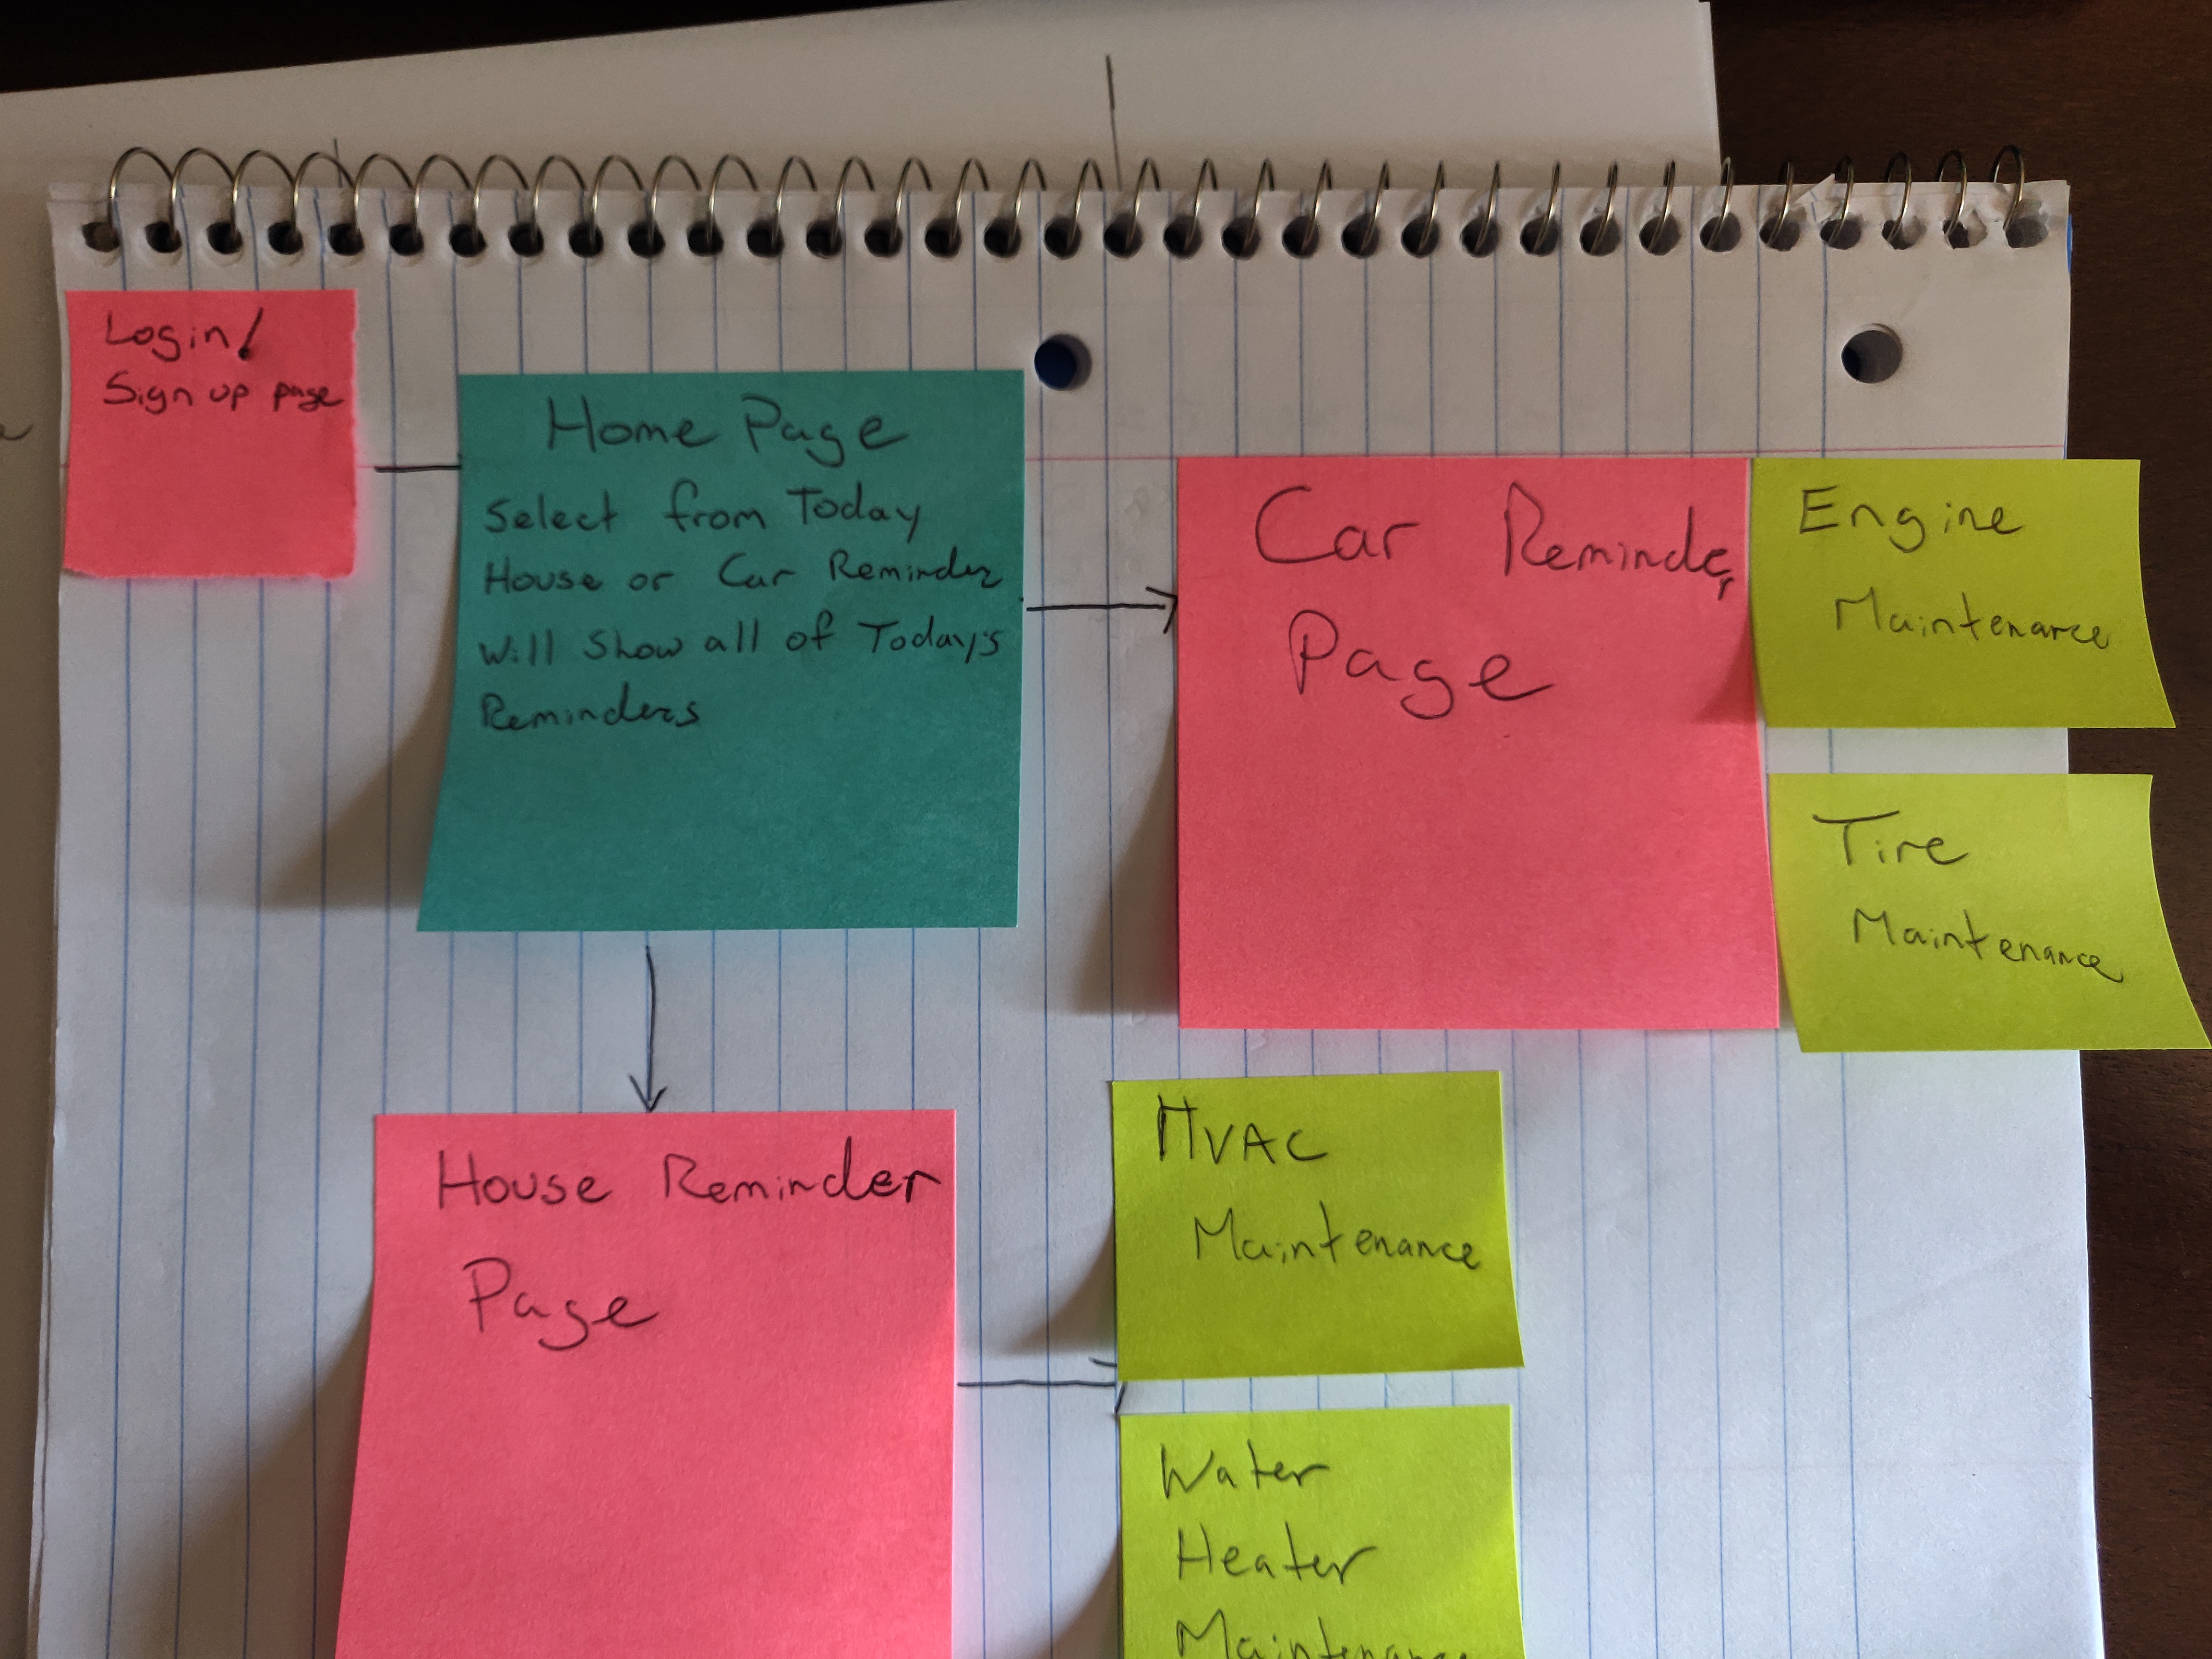 Login/
Sign up page
Home Page
Select from Today
House or Car Reminder
Will Show all of Today's
Reminders
Car Reminder
Page
Engine
Maintenance
Tire
Maintenance
House Reminder
Page
HVAC
Maintenance
Water
Heater
Maintenance